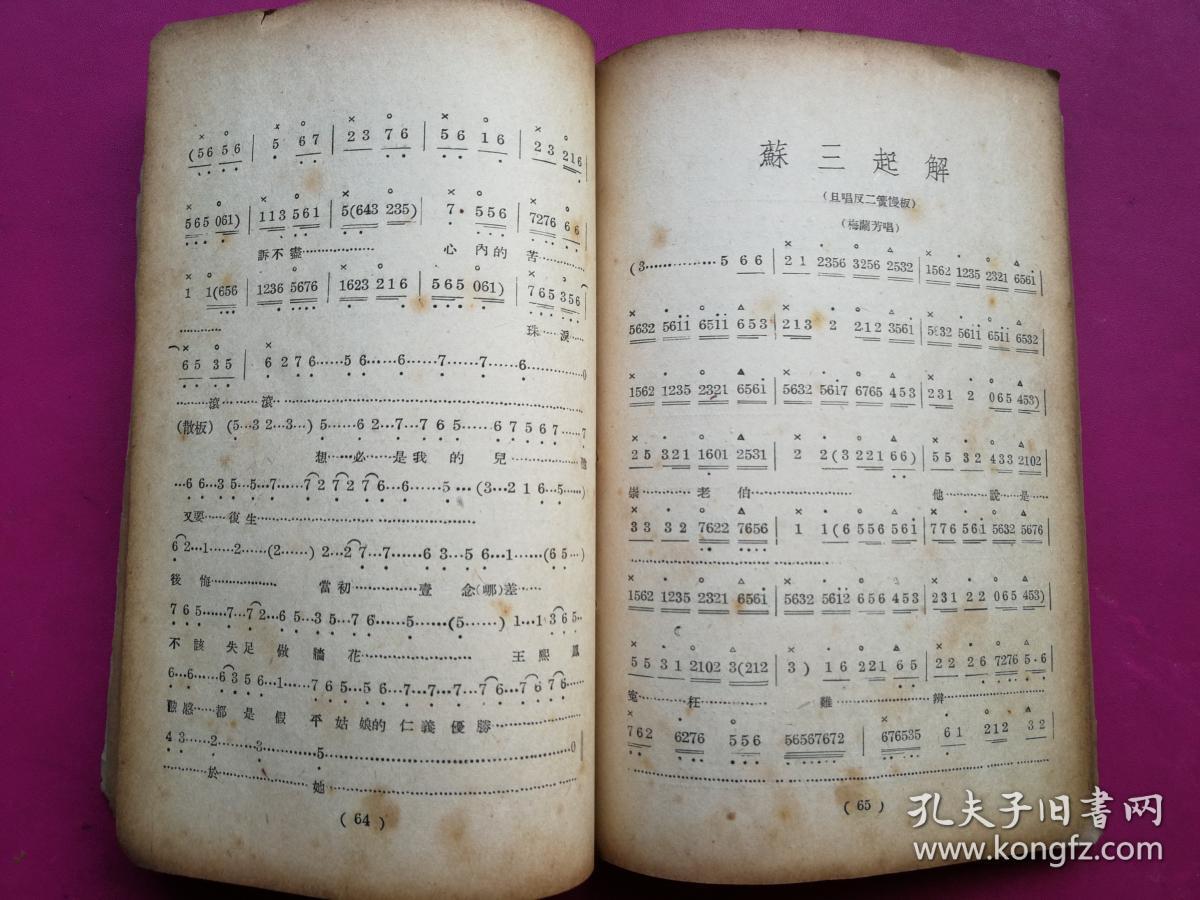 (56 56 | 5 67 | 23 76 | 56 16 | 23 216
565 061) | 113 561 | 5(643 235) | 7· 556 | 7276 66
訴不盡 心內的 苦
1 1(656 | 1236 5676 | 1623 216 | 565 061) | 765 356
珠 淚
65 35 | 6 276……56……6……7……7……6……0
滾 滾
(散板) (5…32…3…) 5……62…7…765……67567……7
想 必 是我 的 兒
…66…35…5…7……727276…6……5…(3…216…5……
又要 復生
62…1……2……(2……)2…27…7……63…56…1……(65…
後悔 當初 壹 念(哪)差
765……7…72…65…35…76……5……(5……)1…1365…
不該 失足 做 牆花 王熙鳳
66……6356…1……765…56…7…7…7…76…7676…
都是假 平姑娘的 仁義優勝
43……2……3……5……0
於 她
(64)
蘇三起解
(旦唱反二簧慢板)
(梅蘭芳唱)
(3………………5 66 | 21 2356 3256 2532 | 1562 1235 2321 6561
5632 5611 6511 653 | 213 2 212 3561 | 5632 5611 6511 6532
1562 1235 2321 6561 | 5632 5617 6765 453 | 231 2 065 453)
25 321 1601 2531 | 2 2(3221 66) | 55 32 433 2102
崇 老 伯 他 說 是
33 32 7622 7656 | 1 1(6 556 561 | 776 561 5632 5676
1562 1235 2321 6561 | 5632 5612 656 453 | 231 22 065 453)
55 31 2102 3(212 | 3) 16 221 65 | 22 26 7276 5·6
冤 枉 難 辨
762 6276 556 56567672 | 676535 61 212 32
(65)
孔夫子旧書网
www.kongfz.com